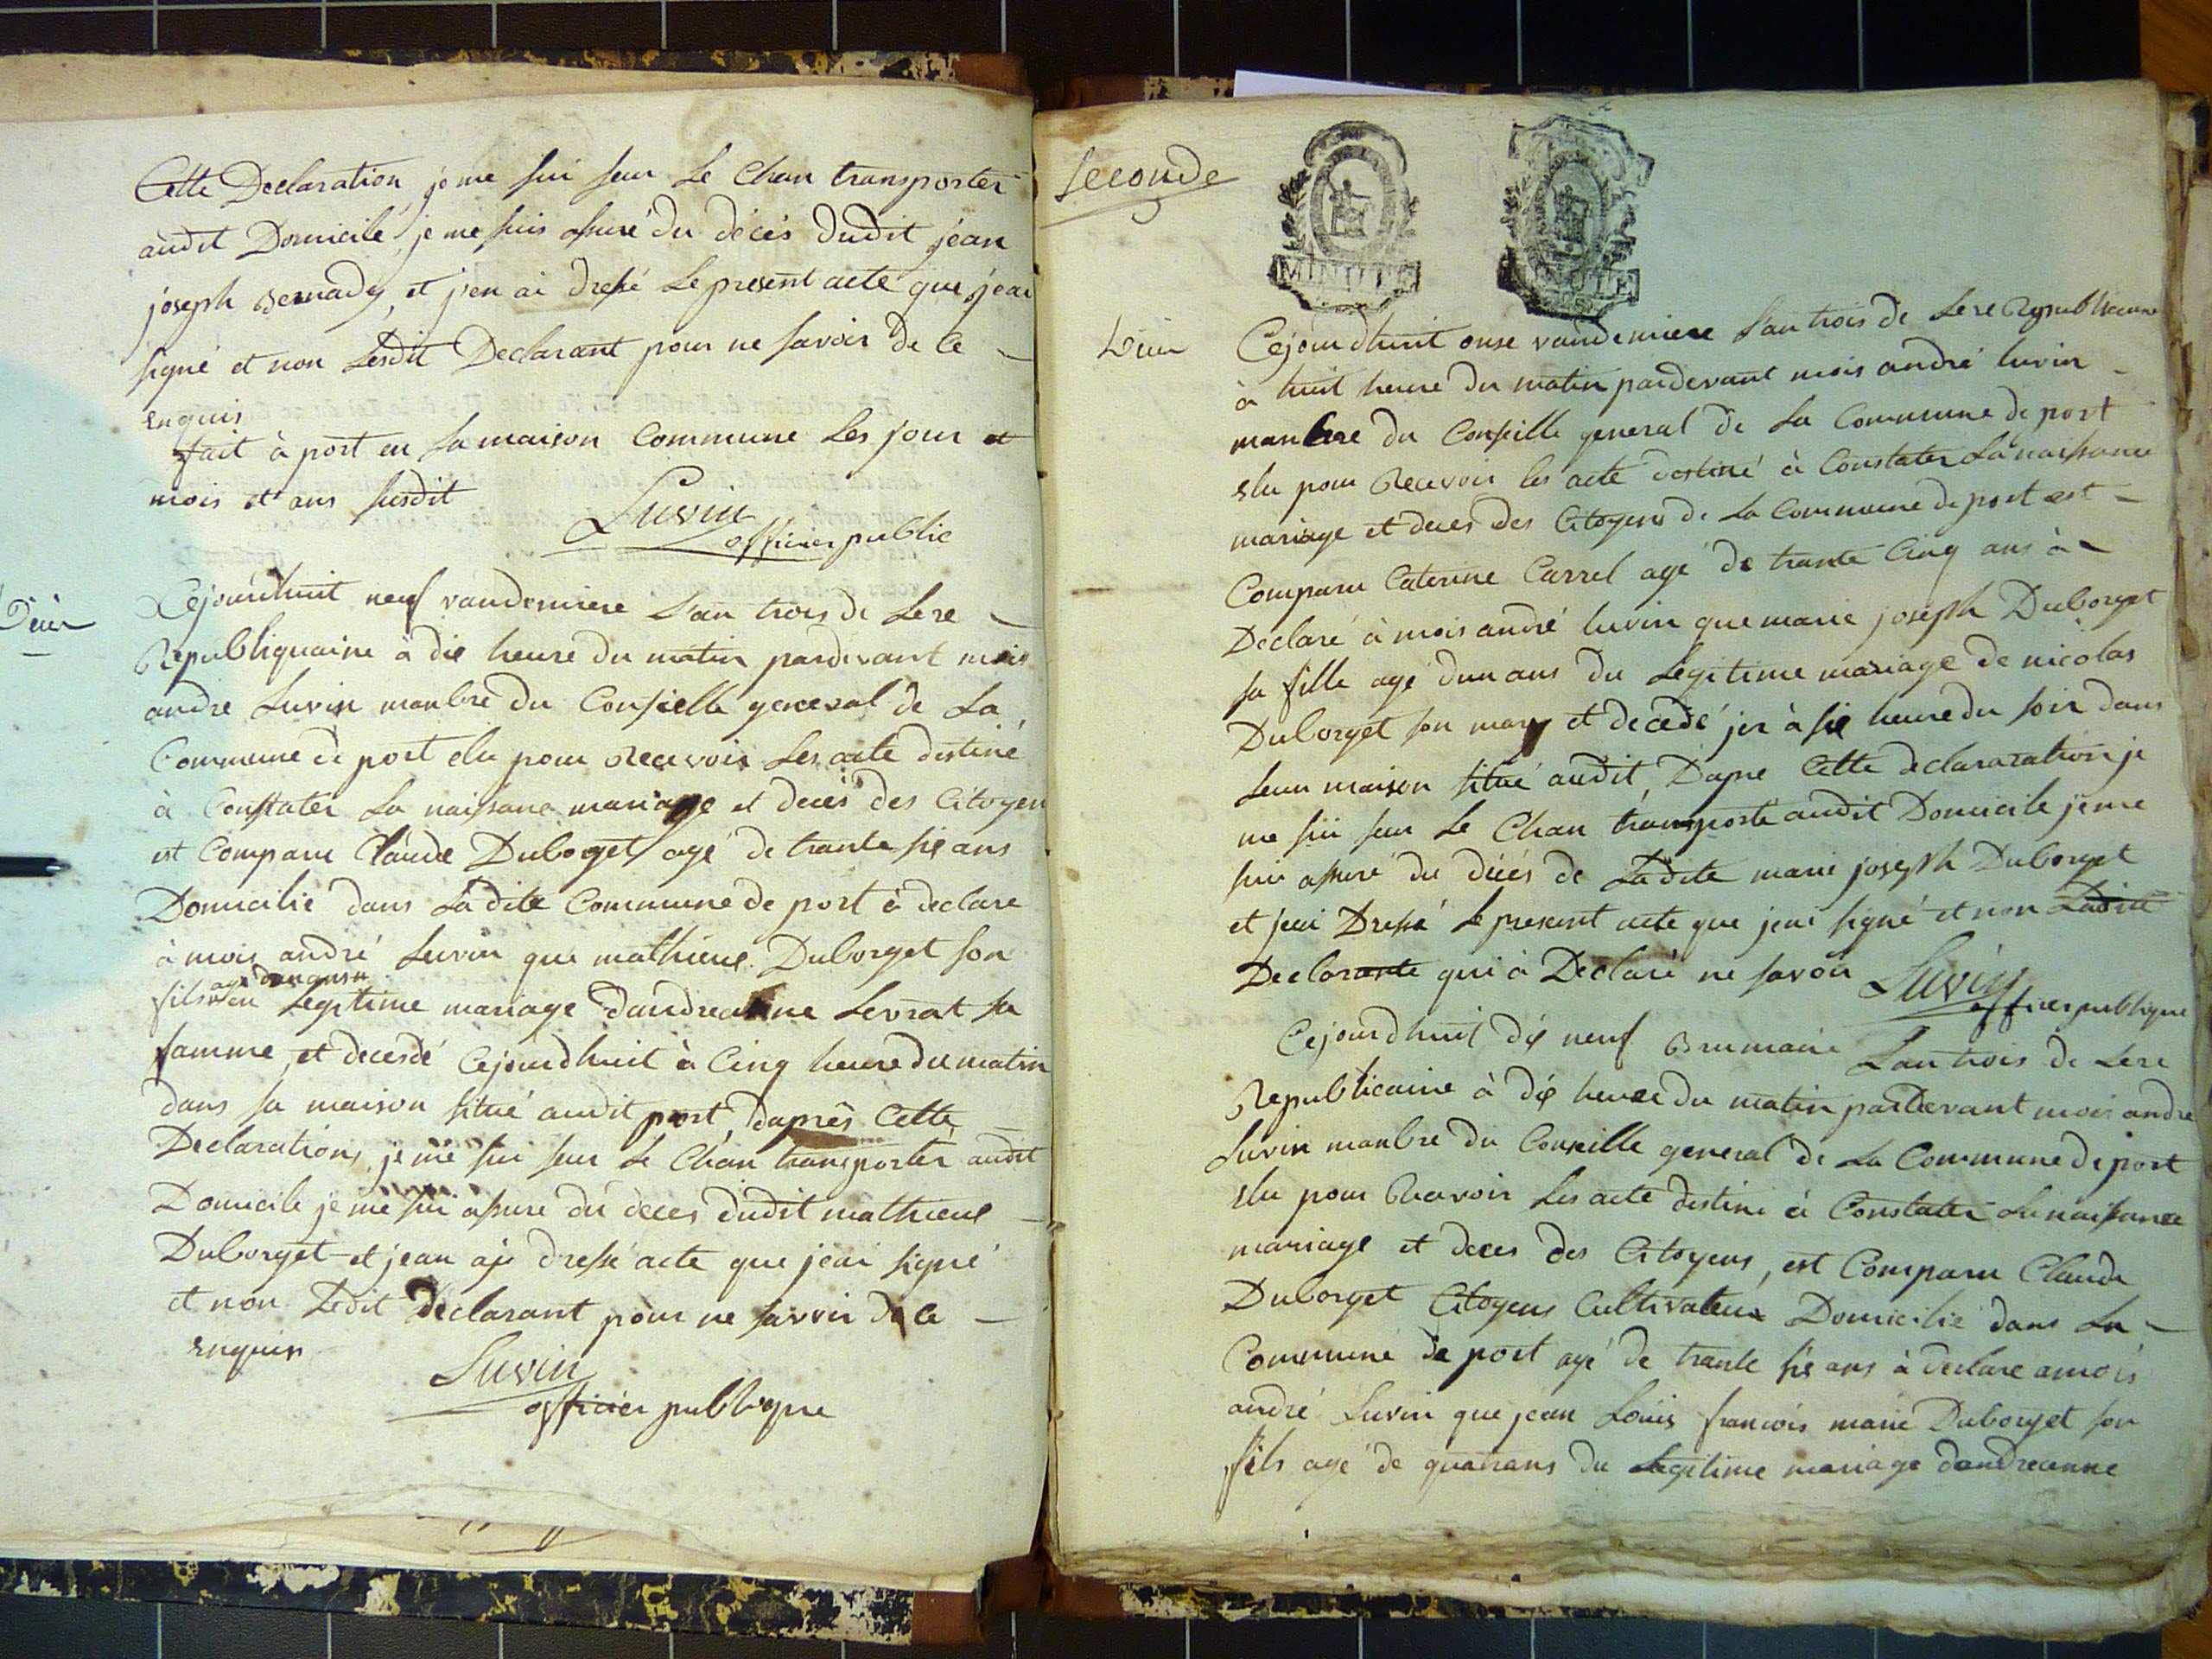 Cette Declaration, je me sui seur Le Chan transporter
audit Domicile, je me suis assuré du décés dudit jean
joseph Bernady, et j'en ai dressé Le present acte que jeai
signé et non Lesdit Declarant pour ne savoir de Ce
enquis
fait à port en La maison Commune Les jour et
mois et ans susdit
Luvin
officier public
Décés
Cejourdhuit neuf vandemiere L'an trois de Lere
Republiquaine à dix heure du matin pardevant mois
andre Luvin manbre du Conseille general de La
Commune de port elu pour Recevoir Les acte destiné
à Constater La naissance mariage et deces des Citoyen
est Comparu Claude Duboget agé de trante six ans
Domicilié dans Ladite Commune de port à declare
à mois andré Luvin que mathieux Duborget son
agé
fils du Legitime mariage dandreanne Levrat sa
famme, et decedé Cejourdhuit à Cinq heure du matin
dans sa maison situé audit port, daprès Cette
Declaration, je me sui seur Le Chan transporter audit
Domicile je me sui assure du deces dudit mathieux
Duborget et jean aji dressé acte que jeai signé
et non Ledit declarant pour ne savoir de Ce
enquis
Luvin
officier publique
Seconde
MINUTE
MINUTE
Décés
Cejourdhuit onse vandemiere L'an trois de Lere Republicaine
à huit heure du matin pardevant mois andré luvin
manbre du Conseille general de La Commune de port
elu pour Recevoir les acte destiné à Constater La naissance
mariage et deces des Citoyens de La Commune de port est
Comparu Caterine Carrel agé de trante Cinq ans à
Declaré à mois andré luvin que marie joseph Duborget
sa fille agé dun ans du Legitime mariage de nicolas
Duborget son mary et decedé jer à six heure du soir dans
Leur maison situé audit, Dapre Cette declararation je
me sui seur Le Chan transporté audit Domicile je me
sui assuré du décés de Ladite marie joseph Duborget
et jeai Dressé Le present acte que jeai signé et non Ladite
Declarante qui à Declaré ne savoir
Luvin
officier publique
Cejourdhuit dix neuf Brumaire L'an trois de Lere
Republicaine à dix heure du matin pardevant mois andre
Luvin manbre du Conseille general de La Commune de port
elu pour Recevoir Les acte destiné à Constater La naissance
mariage et deces des Citoyens, est Comparu Claude
Duborget Citoyens Cultivateur Domicilié dans La
Commune de port agé de trante six ans à declare a mois
andré Luvin que jean Louis francois marie Duborget son
fils agé de quatrans du Legitime mariage dandreanne